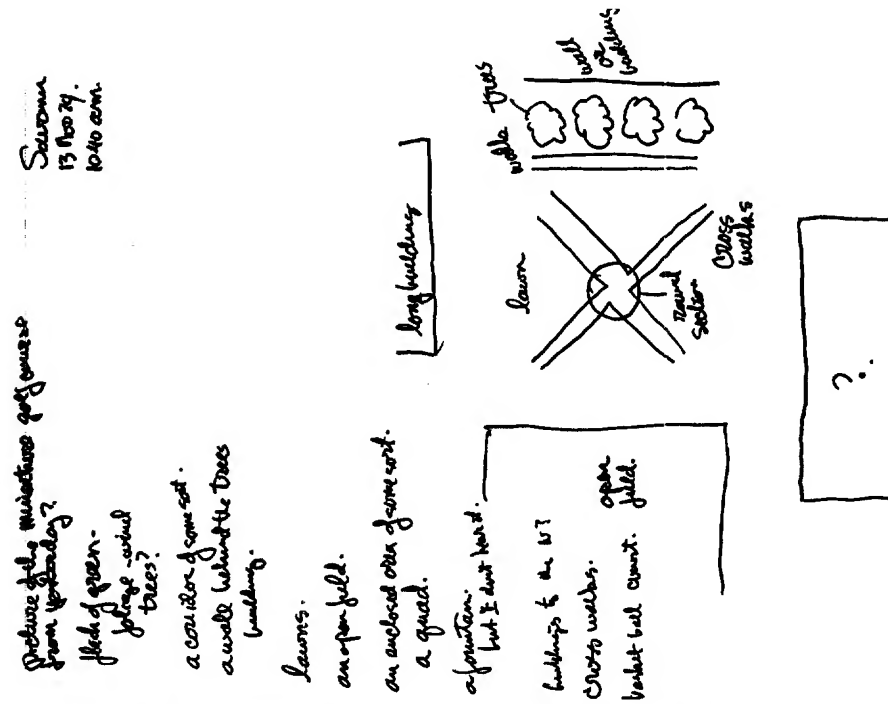 13 Nov 79.
1040 am.
picture of the miniature golf course
from yesterday?
flash of green-
foliage
trees?
a corridor of some sort.
a wall behind the trees
building.
lawns.
an open field.
an enclosed area of some sort.
a quad.
a fountain.
but I don't hear it.
buildings to the
cross walks.
basket ball court.
open
field.
long building
lawn
round
section
cross
walks
walk
trees
wall
or
building
?.